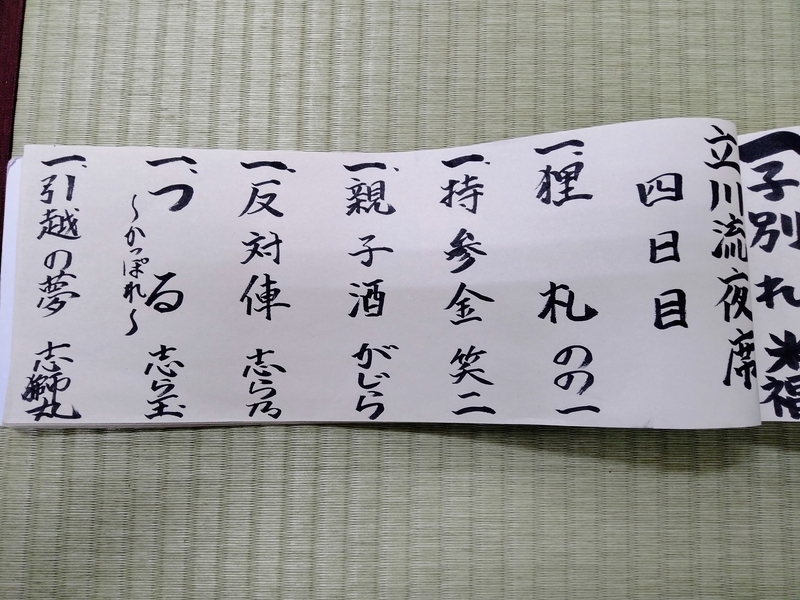 一、子別れ 米福
立川流夜席
四日目
一、狸札 のの一
一、持参金 笑二
一、親子酒 がじら
一、反対俥 志ら乃
一、つる 志ら玉
〜かっぽれ〜
一、引越の夢 志獅丸